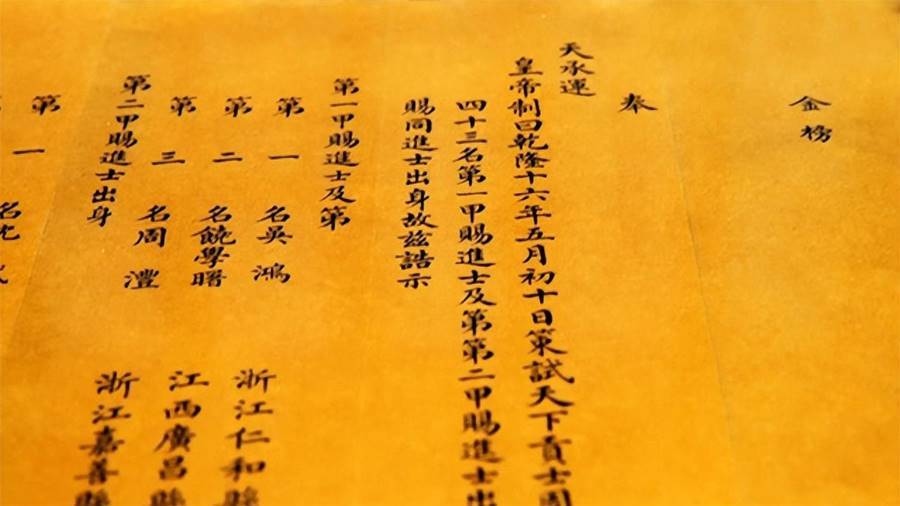 金榜
奉
天承運
皇帝制曰乾隆十六年五月初十日策試天下貢士
四十三名第一甲賜進士及第第二甲賜進士出
賜同進士出身故兹誥示
第一甲賜進士及第
第一名吳鴻 浙江仁和縣
第二名饒學曙 江西廣昌縣
第三名周灃 浙江嘉善縣
第二甲賜進士出身
第一名沈